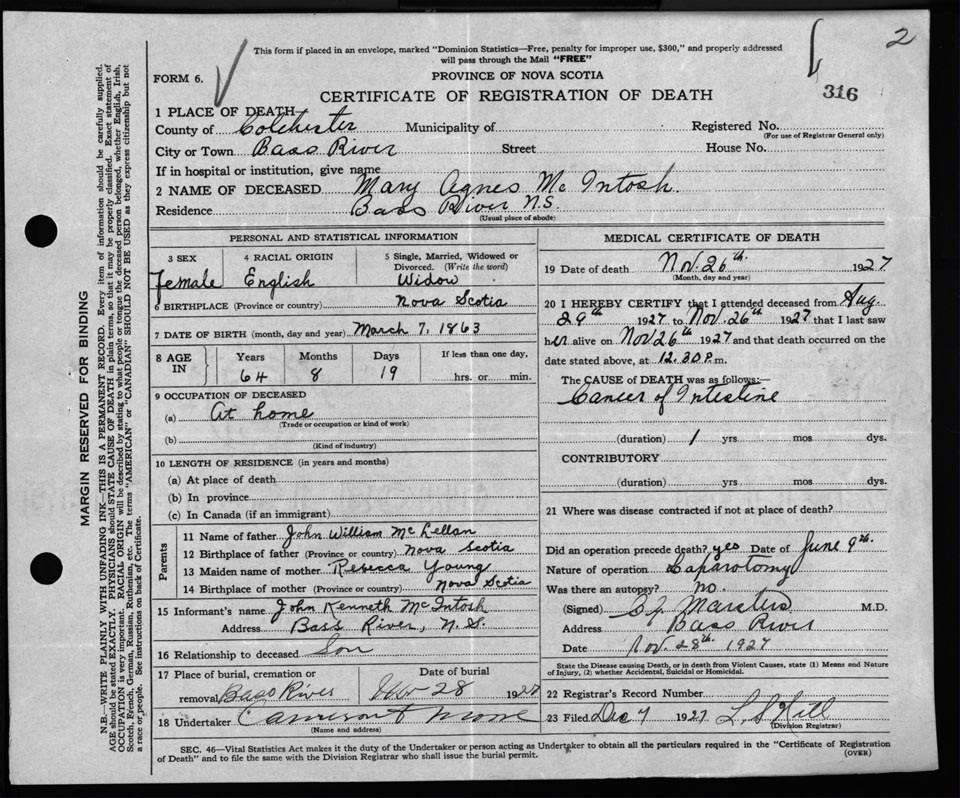 2
This form if placed in an envelope, marked "Dominion Statistics—Free, penalty for improper use, $300," and properly addressed
will pass through the Mail "FREE"
FORM 6.
PROVINCE OF NOVA SCOTIA
CERTIFICATE OF REGISTRATION OF DEATH
316
1 PLACE OF DEATH
County of Colchester Municipality of Registered No.
(For use of Registrar General only)
City or Town Bass River Street House No.
If in hospital or institution, give name
2 NAME OF DECEASED Mary Agnes Mc Intosh.
Residence Bass River N.S.
(Usual place of abode)
PERSONAL AND STATISTICAL INFORMATION
3 SEX 4 RACIAL ORIGIN 5 Single, Married, Widowed or
Divorced. (Write the word)
Female English Widow
6 BIRTHPLACE (Province or country) Nova Scotia
7 DATE OF BIRTH (month, day and year) March 7, 1863
8 AGE IN Years Months Days If less than one day,
64 8 19 hrs. or min.
9 OCCUPATION OF DECEASED
(a) At home
(Trade or occupation or kind of work)
(b)
(Kind of industry)
10 LENGTH OF RESIDENCE (in years and months)
(a) At place of death
(b) In province
(c) In Canada (if an immigrant)
Parents
11 Name of father John William Mc Lellan
12 Birthplace of father (Province or country) Nova Scotia
13 Maiden name of mother Rebecca Young
14 Birthplace of mother (Province or country) Nova Scotia
15 Informant's name John Kenneth McIntosh
Address Bass River, N.S.
16 Relationship to deceased Son
17 Place of burial, cremation or Date of burial
removal Bass River Nov 28 1927
18 Undertaker Cameron &
(Name and address)
MEDICAL CERTIFICATE OF DEATH
19 Date of death Nov. 26th. 1927
(Month, day and year)
20 I HEREBY CERTIFY that I attended deceased from Aug
29th 1927 to Nov. 26th 1927 that I last saw
her alive on Nov 26th 1927 and that death occurred on the
date stated above, at 12.30 P. m.
The CAUSE of DEATH was as follows:—
Cancer of Intestine
(duration) 1 yrs mos dys.
CONTRIBUTORY
(duration) yrs. mos. dys.
21 Where was disease contracted if not at place of death?
Did an operation precede death? yes Date of June 9th.
Nature of operation Laparotomy
Was there an autopsy? no.
(Signed) Marsters M.D.
Address Bass River
Date Nov. 28th. 1927
State the Disease causing Death, or in death from Violent Causes, state (1) Means and Nature
of Injury, (2) whether Accidental, Suicidal or Homicidal.
22 Registrar's Record Number
23 Filed Dec 7 1927 L S Hill
(Division Registrar)
SEC. 46—Vital Statistics Act makes it the duty of the Undertaker or person acting as Undertaker to obtain all the particulars required in the "Certificate of Registration
of Death" and to file the same with the Division Registrar who shall issue the burial permit.
(OVER)
MARGIN RESERVED FOR BINDING
N.B.—WRITE PLAINLY WITH UNFADING INK—THIS IS A PERMANENT RECORD. Every item of information should be carefully supplied.
AGE should be stated EXACTLY. PHYSICIANS should STATE CAUSE OF DEATH in plain terms, so that it may be properly classified. Exact statement of
OCCUPATION is very important. RACIAL ORIGIN will be described by stating to what people or tongue the deceased person belonged, whether English, Irish,
Scotch, French, German, Russian, Ruthenian, etc. The terms "AMERICAN" or "CANADIAN" SHOULD NOT BE USED as they express citizenship but not
a race or people. See instructions on back of Certificate.